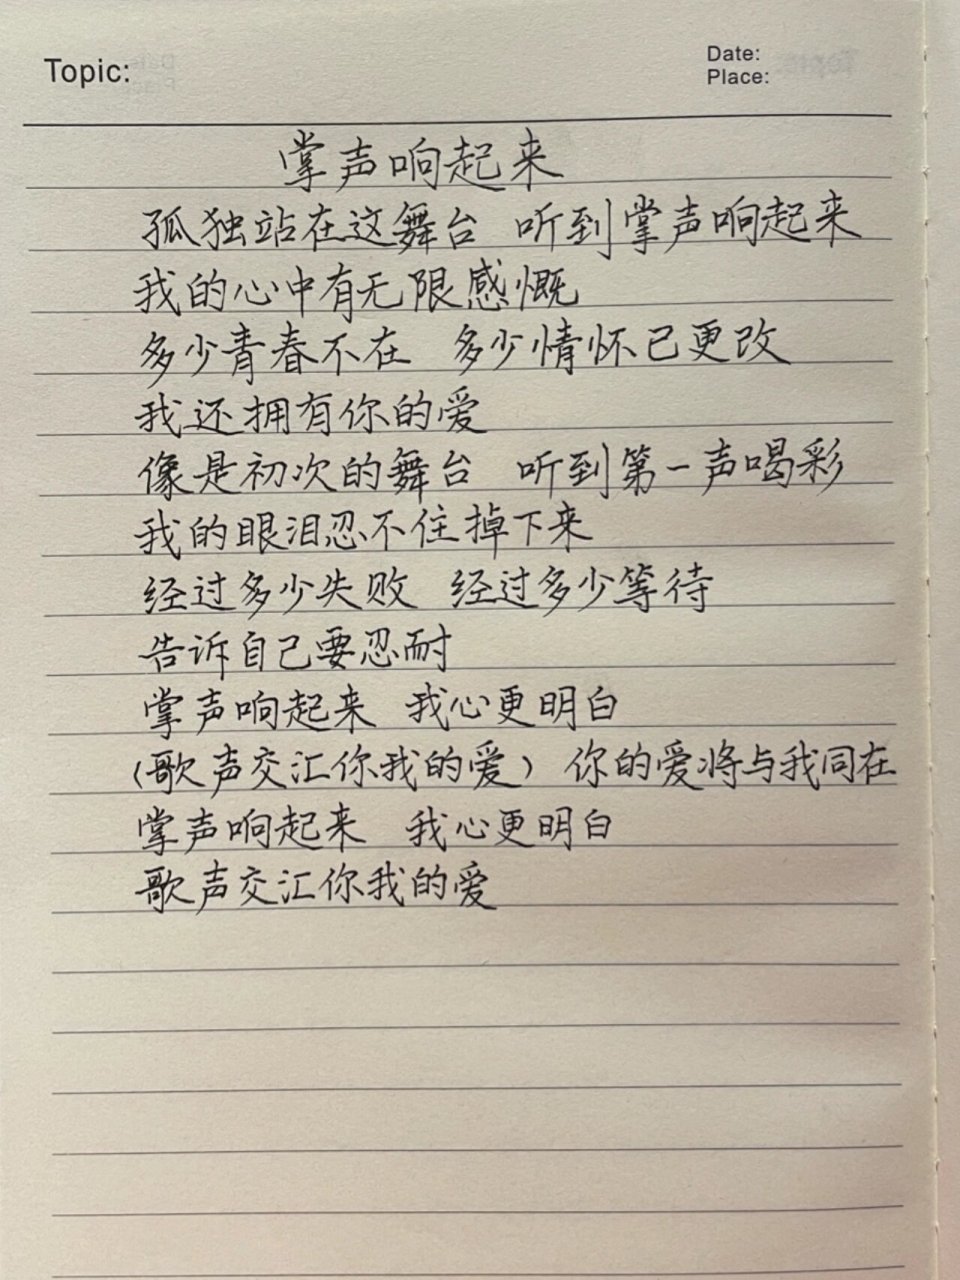 Topic:
Date:
Place:
掌声响起来
孤独站在这舞台 听到掌声响起来
我的心中有无限感慨
多少青春不在 多少情怀已更改
我还拥有你的爱
像是初次的舞台 听到第一声喝彩
我的眼泪忍不住掉下来
经过多少失败 经过多少等待
告诉自己要忍耐
掌声响起来 我心更明白
(歌声交汇你我的爱) 你的爱将与我同在
掌声响起来 我心更明白
歌声交汇你我的爱